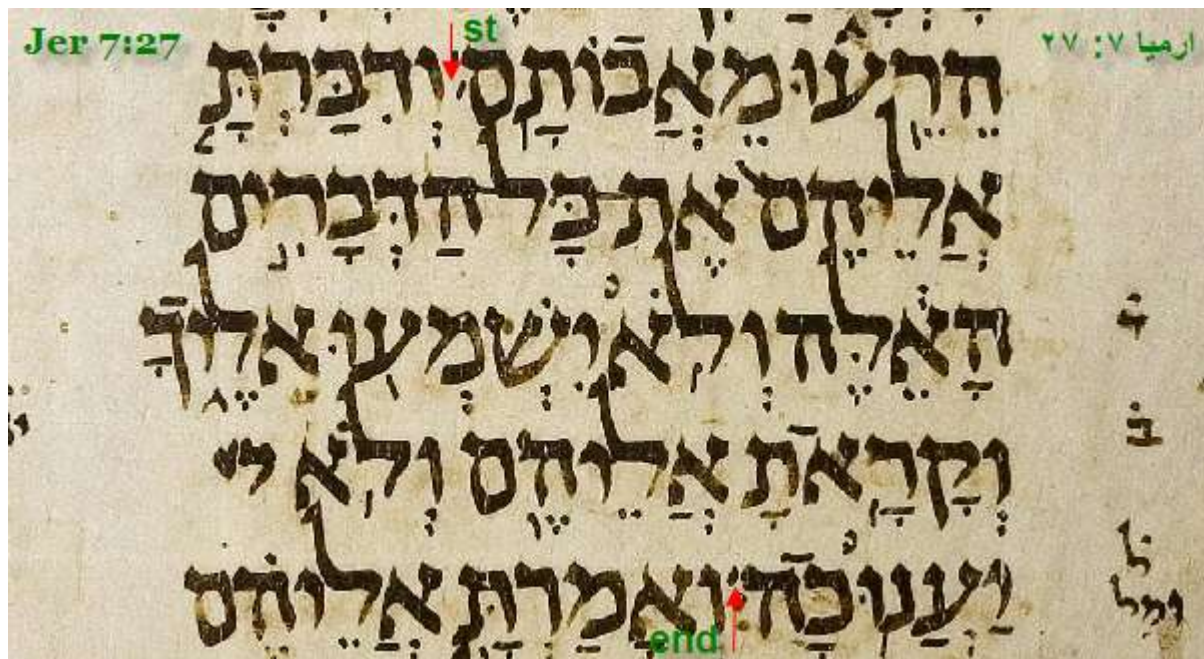 Jer 7:27
ارميا ٧: ٢٧
st
הֵרֵ֖עוּ מֵאֲבוֹתָֽם׃ וְדִבַּרְתָּ֤
אֲלֵיהֶם֙ אֶת־כָּל־הַדְּבָרִ֣ים
הָאֵ֔לֶּה וְלֹ֥א יִשְׁמְע֖וּ אֵלֶ֑יךָ
וְקָרָ֥אתָ אֲלֵיהֶ֖ם וְלֹ֥א י
יַעֲנֽוּכָה׃ וְאָמַרְתָּ֣ אֲלֵיהֶ֗ם
end
ב̇
ל̇
ומל